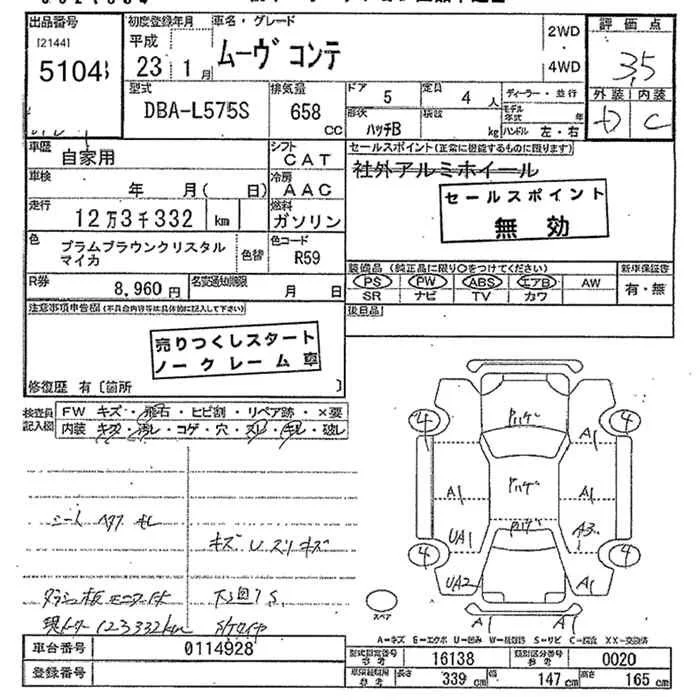 出品番号
[2144]
5104
初度登録年月
平成
23年 1月
車名・グレード
ムーヴ コンテ
2WD
4WD
評価点
3.5
外装 内装
D C
型式
DBA-L575S
排気量
658 CC
ドア 5
定員 4人
形状
ハッチB
積載 kg
ディーラー・並行
モデル年式 年
ハンドル 左・右
車歴
自家用
シフト
CAT
車検
年 月( 日)
冷房
AAC
走行
12万3千332 km
燃料
ガソリン
セールスポイント(正常に機能するものに限ります)
社外アルミホイール
セールスポイント
無効
色
プラムブラウンクリスタル
マイカ
色替
色コード
R59
R券
8,960円
名変通知期限
月 日
装備品(純正品に限り〇をつけてください)
PS PW ABS エアB AW
SR ナビ TV カワ
新車保証書
有・無
後日品
注意事項申告欄(不具合内容等は具体的に記入して下さい)
売りつくしスタート
ノークレーム車
修復歴 有〔箇所 〕
検査員
記入欄
FW キズ・飛石・ヒビ割・リペア跡・×要
内装・キズ・汚レ・コゲ・穴・スレ・キレ・破レ
シート ヘタリ キレ
キズ U スリキズ
下廻りS
現メーター 123332km
4 4
A1
A1 A1
UA1 A3
4 4
UA2 A1
A1 A1
スペア
A=キズ E=エクボ U=凹み W=補修跡 S=サビ C=腐食 XX=交換済
車台番号 0114928
登録番号
型式指定番号 参考 16138
類別区分番号 参考 0020
車検証記載 参考 長さ 339 cm 幅 147 cm 高さ 165 cm